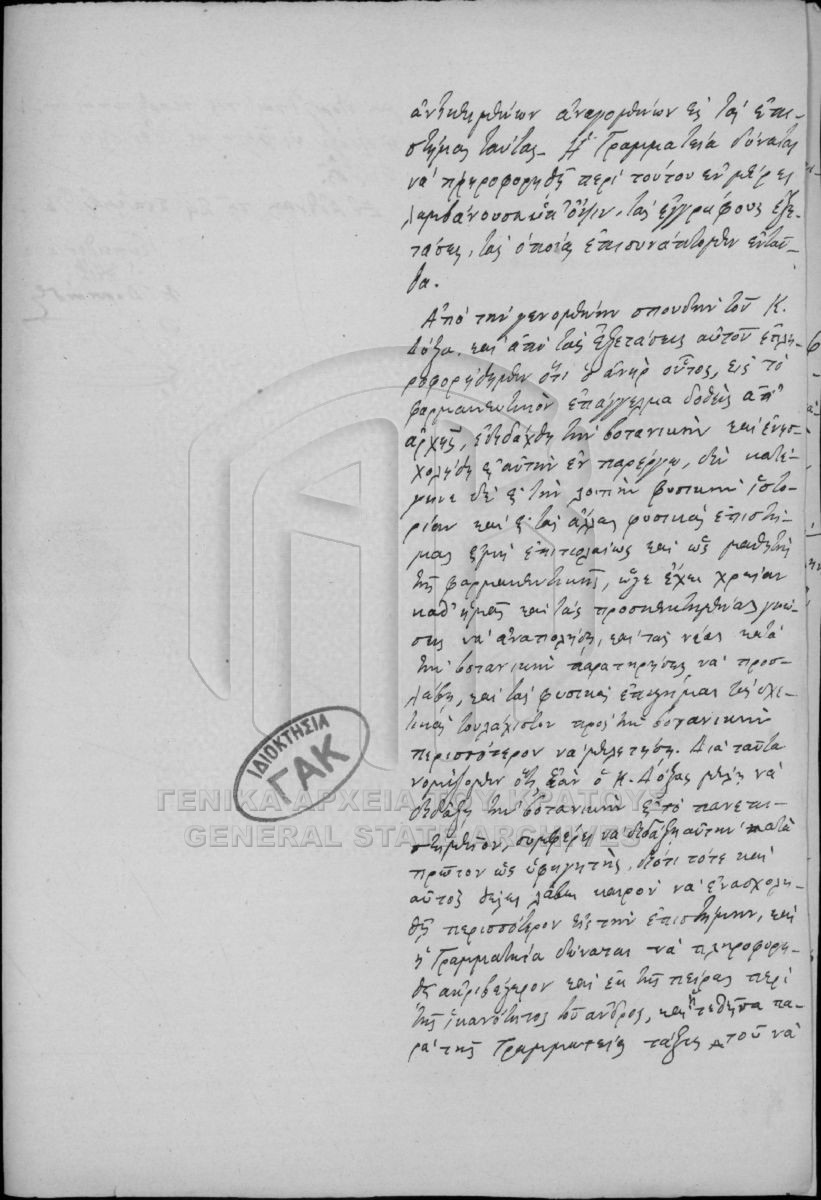 ἀντικειμένων ἀναγομένων εἰς τὰς ἐπι-
στήμας ταύτας. Ἡ Γραμματεία δύναται
νὰ πληροφορηθῇ περὶ τούτου ἐν μέρει
λαμβάνουσα ὑπ' ὄψιν τὰς ἐγγράφους ἐξε-
τάσεις, τὰς ὁποίας ἐπισυνάπτομεν ἐνταῦ-
θα.
Ἀπὸ τὴν γενομένην σπουδὴν τοῦ Κ.
Δόξα, καὶ ἀπὸ τὰς ἐξετάσεις αὐτοῦ ἐπλη-
ροφορήθημεν ὅτι ὁ ἀνὴρ οὗτος, εἰς τὸ
φαρμακευτικὸν ἐπάγγελμα δοθεὶς ἀπ'
ἀρχῆς, ἐδιδάχθη τὴν βοτανικὴν καὶ ἐνησ-
χολήθη εἰς αὐτὴν ἐν παρέργῳ, δὲν κατέ-
γινε δὲ εἰς τὴν λοιπὴν φυσικὴν ἱστο-
ρίαν καὶ εἰς τὰς ἄλλας φυσικὰς ἐπιστή-
μας εἰμὴ ἐπιπολαίως καὶ ὡς μαθητὴς
τῆς φαρμακευτικῆς, ὥστε ἔχει χρείαν
καθ' ἡμᾶς καὶ τὰς προσκεκτημένας γνώ-
σεις νὰ ἀναπολήσῃ, καὶ τὰς νέας κατὰ
τὴν βοτανικὴν παρατηρήσεις νὰ προσ-
λάβῃ, καὶ τὰς φυσικὰς ἐπιστήμας τὰς σχε-
τικὰς τουλάχιστον πρὸς τὴν βοτανικὴν
περισσότερον νὰ μελετήσῃ. Διὰ ταῦτα
νομίζομεν ὅτι ἐὰν ὁ Κ. Δόξας μέλλῃ νὰ
διδάξῃ τὴν βοτανικὴν εἰς τὸ πανεπι-
στήμιον, συμφέρει νὰ διδάξῃ αὐτὴν κατὰ
πρῶτον ὡς ὑφηγητής, διότι τότε καὶ
αὐτὸς θέλει λάβει καιρὸν νὰ ἐνασχολη-
θῇ περισσότερον εἰς τὴν ἐπιστήμην, καὶ
ἡ Γραμματεία δύναται νὰ πληροφορη-
θῇ ἀκριβέστερον καὶ ἐκ τῆς πείρας περὶ
τῆς ἱκανότητος τοῦ ἀνδρός, καὶ ἡ τεθεῖσα πα-
ρὰ τῆς Γραμματείας τάξις τοῦ νὰ
ΙΔΙΟΚΤΗΣΙΑ
ΓΑΚ
ΓΕΝΙΚΑ ΑΡΧΕΙΑ ΤΟΥ ΚΡΑΤΟΥΣ
GENERAL STATE ARCHIVES